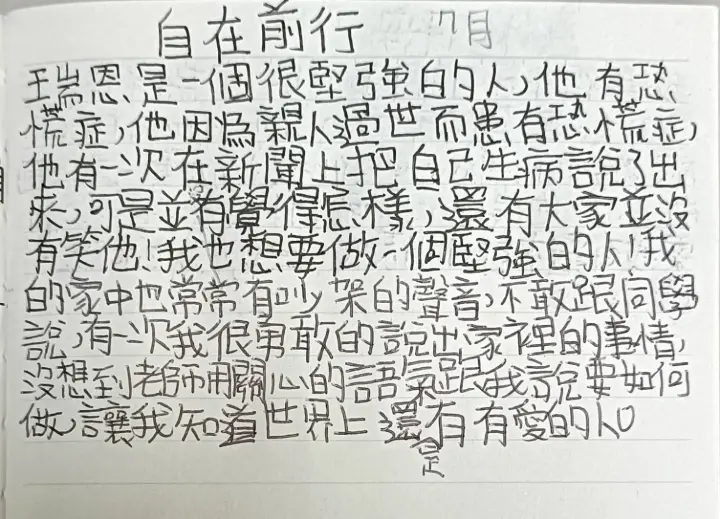 自在前行 月
瑞恩是一個很堅強的人,他有恐
慌症,他因為親人過世而患有恐慌症,
他有一次在新聞上把自己生病說了出
來,可是並沒有覺得怎樣,還有大家並沒
有笑他!我也想要做一個堅強的人!我
的家中也常常有吵架的聲音,不敢跟同學
說,有一次我很勇敢的說出家裡的事情,
沒想到老師用關心的語氣跟我說要如何
做,讓我知道世界上還是有有愛的人。